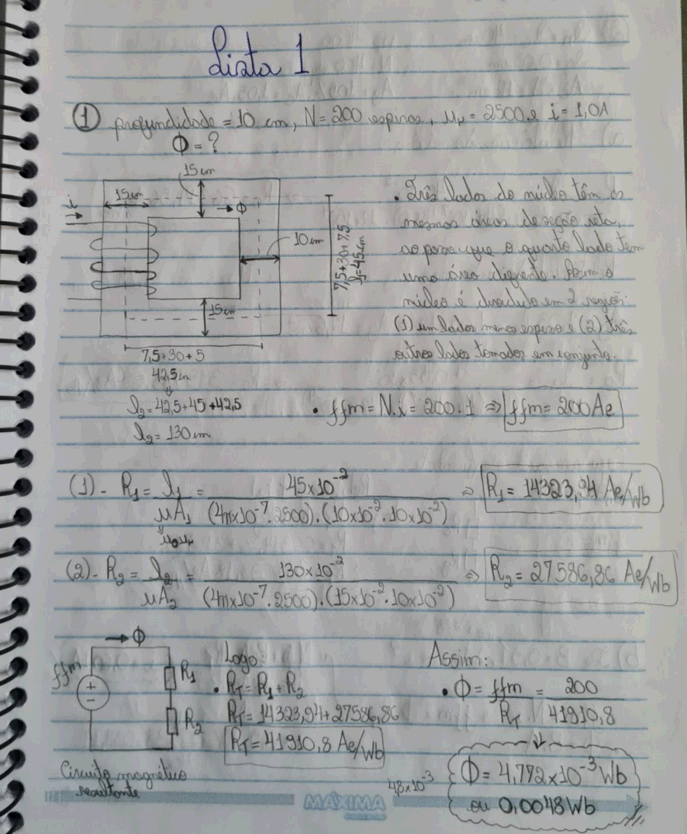 Lista 1
① profundidade = 10 cm, N = 200 espiras, μr = 2500 e i = 1,0A
Φ = ?
15cm
15cm
i
→Φ
10cm
15cm
7,5+30+7,5
l1=45cm
7,5+30+5
42,5cm
l2=42,5+45+42,5
l2=130cm
• Três lados do núcleo têm os
mesmas áreas de seção reta,
ao passo que o quarto lado tem
uma área diferente. Assim o
núcleo é dividido em 2 regiões:
(1) um lado menos espesso e (2) três
outros lados tomados em conjunto.
• ffm = N.i = 200.1 ⇒ ffm = 200Ae
(1)- R1 = l1/μA1 = 45x10⁻²/(4πx10⁻⁷.2500).(10x10⁻².10x10⁻²) ⇒ R1 = 14323,94 Ae/Wb
μ0μr
(2)- R2 = l2/μA2 = 130x10⁻²/(4πx10⁻⁷.2500).(15x10⁻².10x10⁻²) ⇒ R2 = 27586,86 Ae/Wb
→Φ
ffm
+
-
R1
R2
Circuito magnético
resultante
Logo:
• RT = R1 + R2
RT = 14323,94+27586,86
RT = 41910,8 Ae/Wb
Assim:
• Φ = ffm/RT = 200/41910,8
Φ = 4,772x10⁻³ Wb
ou 0,0048Wb
4,8x10⁻³
MÁXIMA